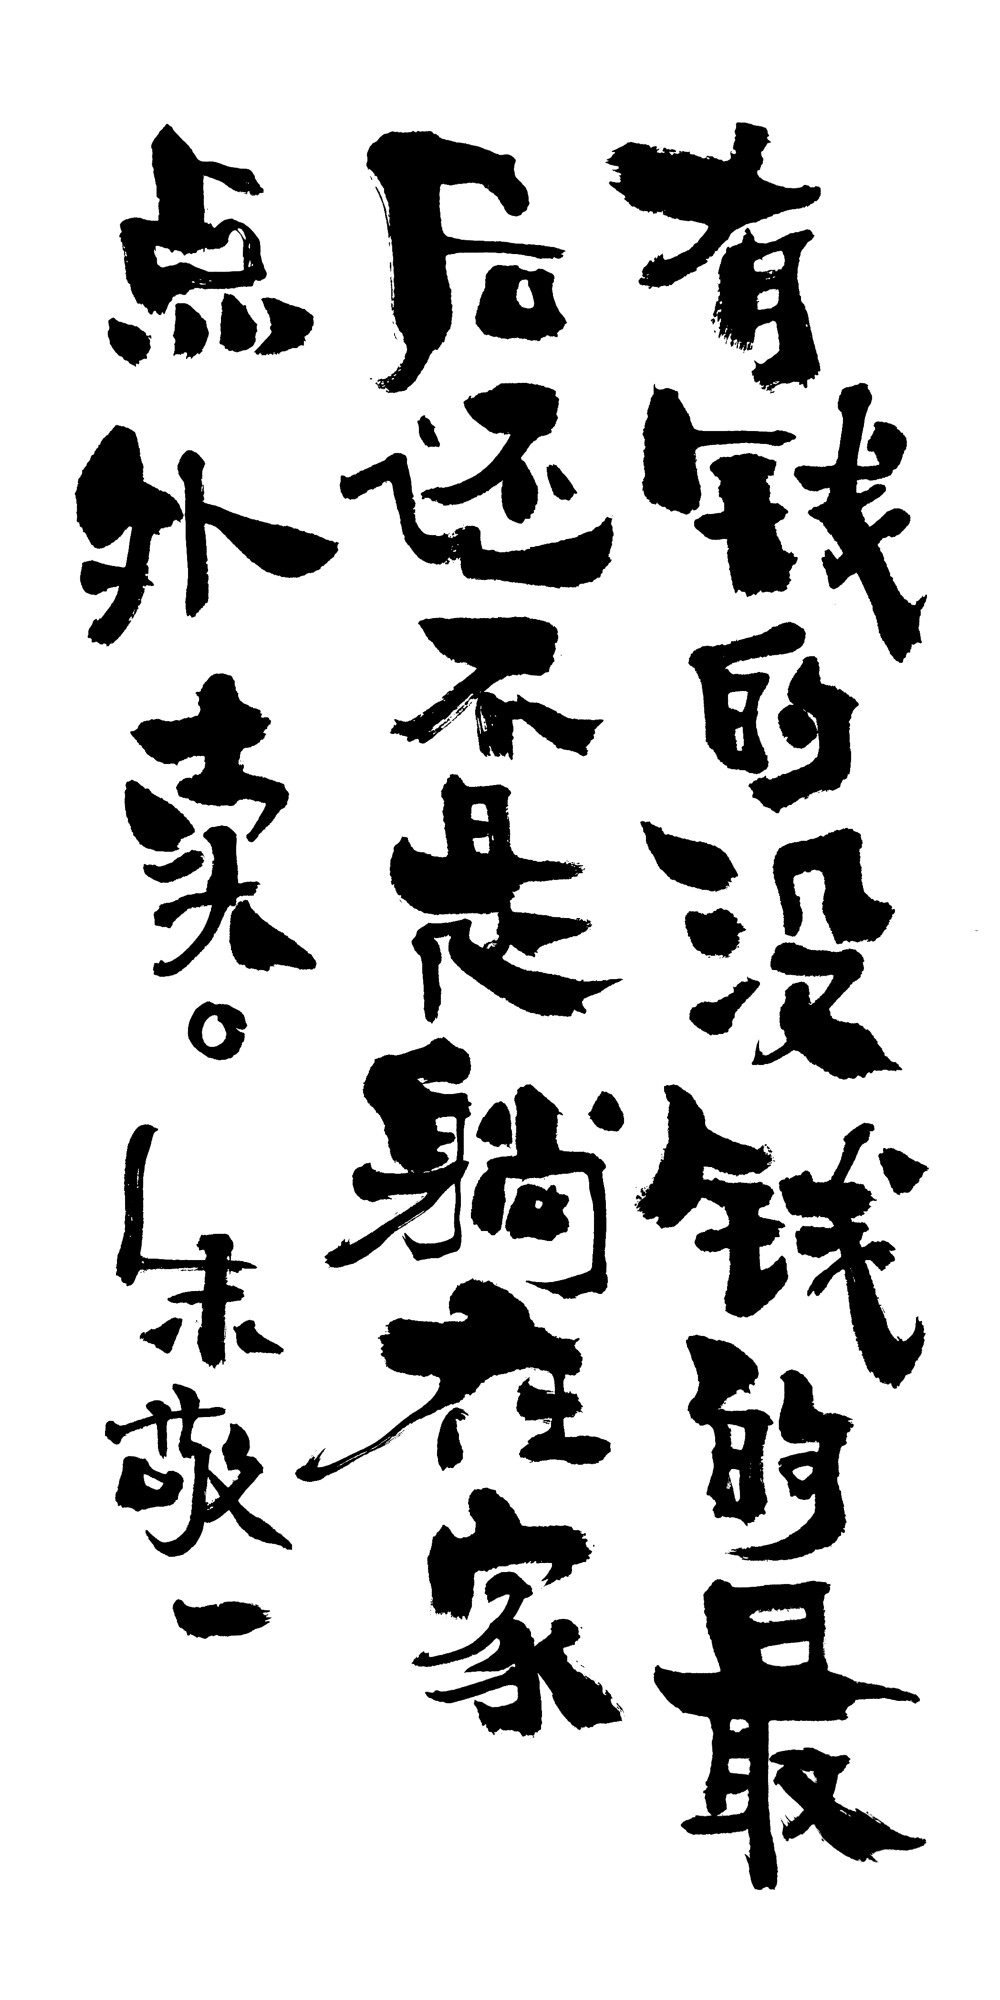 有钱的没钱的最
后还不是躺在家
点外卖。朱敬一